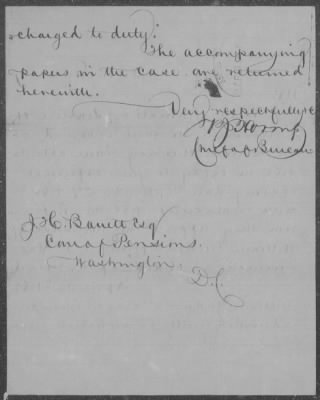 charged to duty."
The accompanying
papers in the case are returned
herewith.
Very respectfully
Chief of Bureau
J. H. Barrett Esq
Com of Pensions
Washington
D.C.